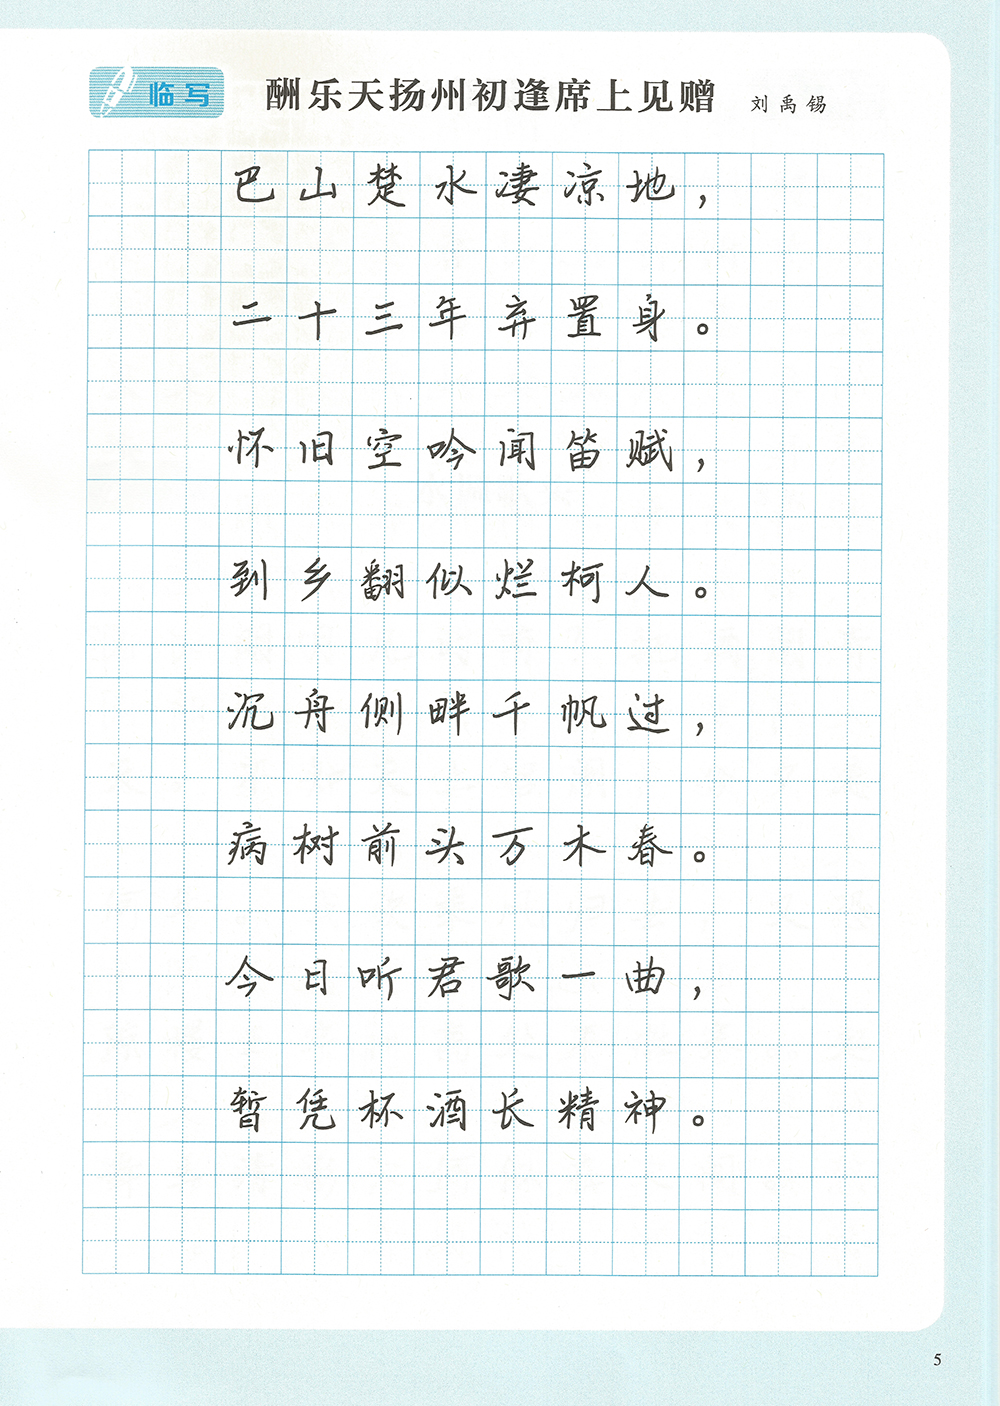 临写
酬乐天扬州初逢席上见赠 刘禹锡
巴山楚水凄凉地，
二十三年弃置身。
怀旧空吟闻笛赋，
到乡翻似烂柯人。
沉舟侧畔千帆过，
病树前头万木春。
今日听君歌一曲，
暂凭杯酒长精神。
5